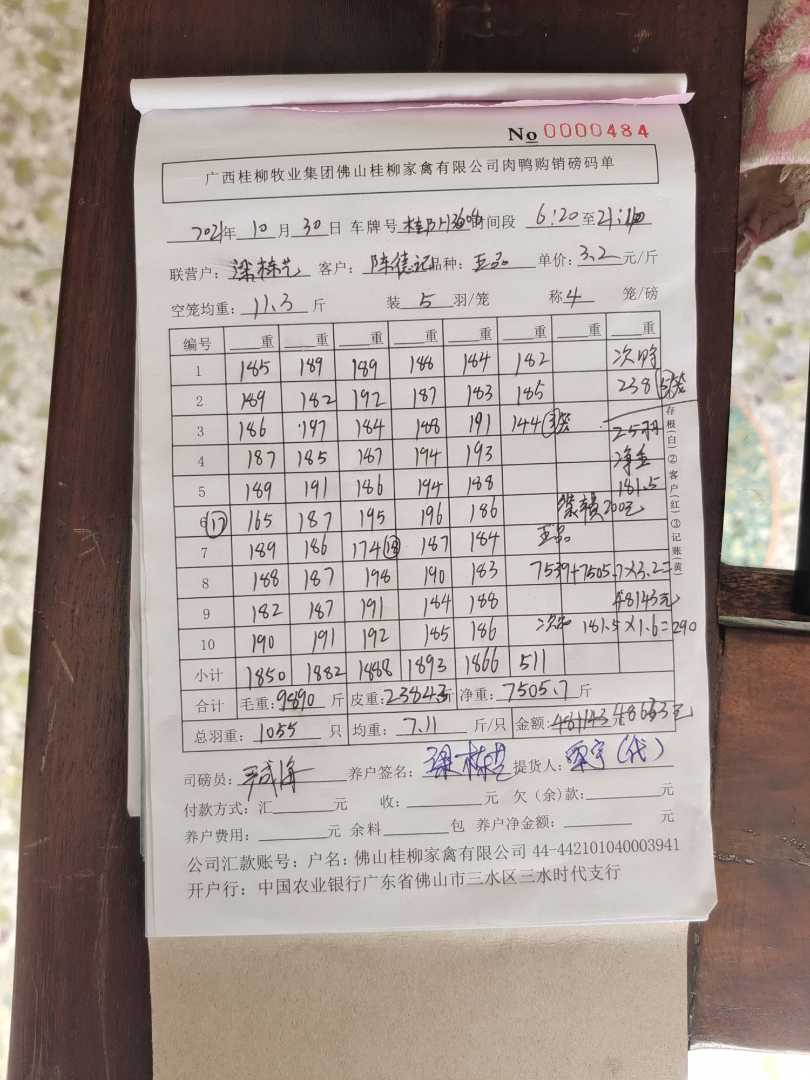 No 0000484
广西桂柳牧业集团佛山桂柳家禽有限公司肉鸭购销磅码单
2021年 10 月 30 日 车牌号 时间段 6:20 至
联营户: 客户: 陈德记 品种: 单价: 3.2 元/斤
空笼均重: 11.3 斤 装 5 羽/笼 称 4 笼/磅
编号 重 重 重 重 重 重 重 重
1 185 189 189 188 184 182
2 189 182 192 187 183 185 238
3 186 197 184 188 191 144 ③笼 25羽
4 187 185 187 194 193 净重
5 189 191 186 194 188 181.5
6 ⑰ 165 187 195 196 186 200元
7 189 186 174 ⑱ 187 184
8 188 187 198 190 183 7539+7505.7×3.2=
9 182 187 191 184 188 48143元
10 190 191 192 185 186 181.5×1.6=290
小计 1850 1882 1888 1893 1866 511
合计 毛重: 9890 斤 皮重: 2384.3 斤 净重: 7505.7 斤
总羽重: 1055 只 均重: 7.11 斤/只 金额:
司磅员: 养户签名: 提货人:
付款方式: 汇 元 收: 元 欠(余)款: 元
养户费用: 元 余料 包 养户净金额: 元
公司汇款账号: 户名: 佛山桂柳家禽有限公司 44-442101040003941
开户行: 中国农业银行广东省佛山市三水区三水时代支行
存根(白)②客户(红)③记账(黄)